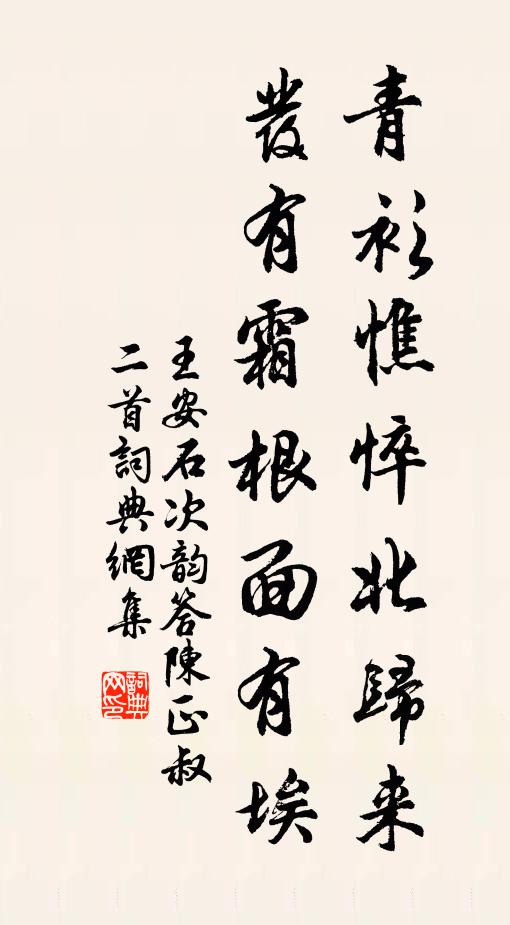 青衫憔悴北歸来
發有霜根面有埃
王安石次韵答陳正叔
二首詞典網集
詞典
网印